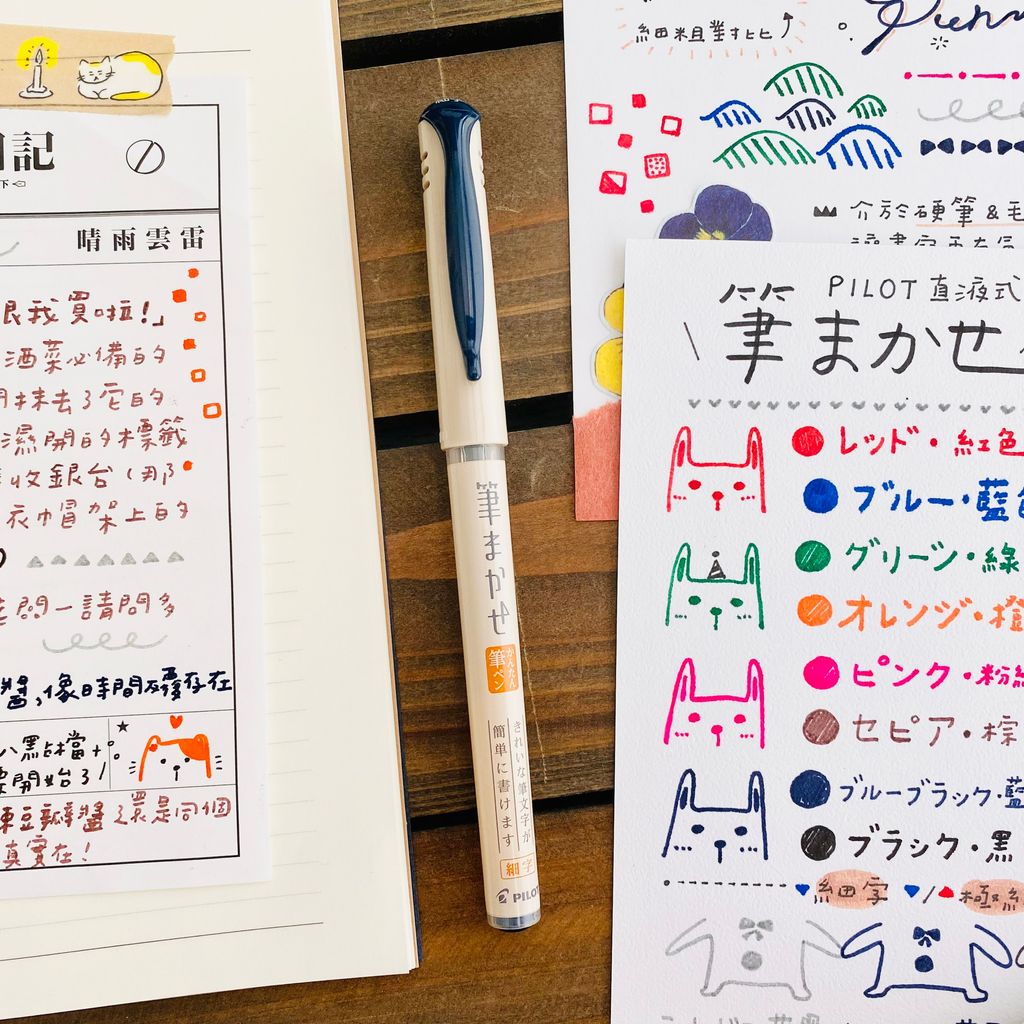 記
下
晴雨雲雷
我買啦!」
酒菜必備的
抹去了它的
濕開的標籤
收銀台(那
衣帽架上的
一請問多
醬,像時間不要存在
黑占檔+
開始了!
豆瓣醬還是同個
真實在!
筆まかせ
かんたん
筆ペン
きれいな筆文字が
簡単に書けます
細字
PILOT
細粗對比
介於硬筆&毛
PILOT 直液式
筆まかせ
レッド・紅色
ブルー・藍色
グリーン・綠
オレンジ・橙
ピンク・粉紅
セピア・棕
ブルーブラック・藍
ブラック・黑
細字 / 極細